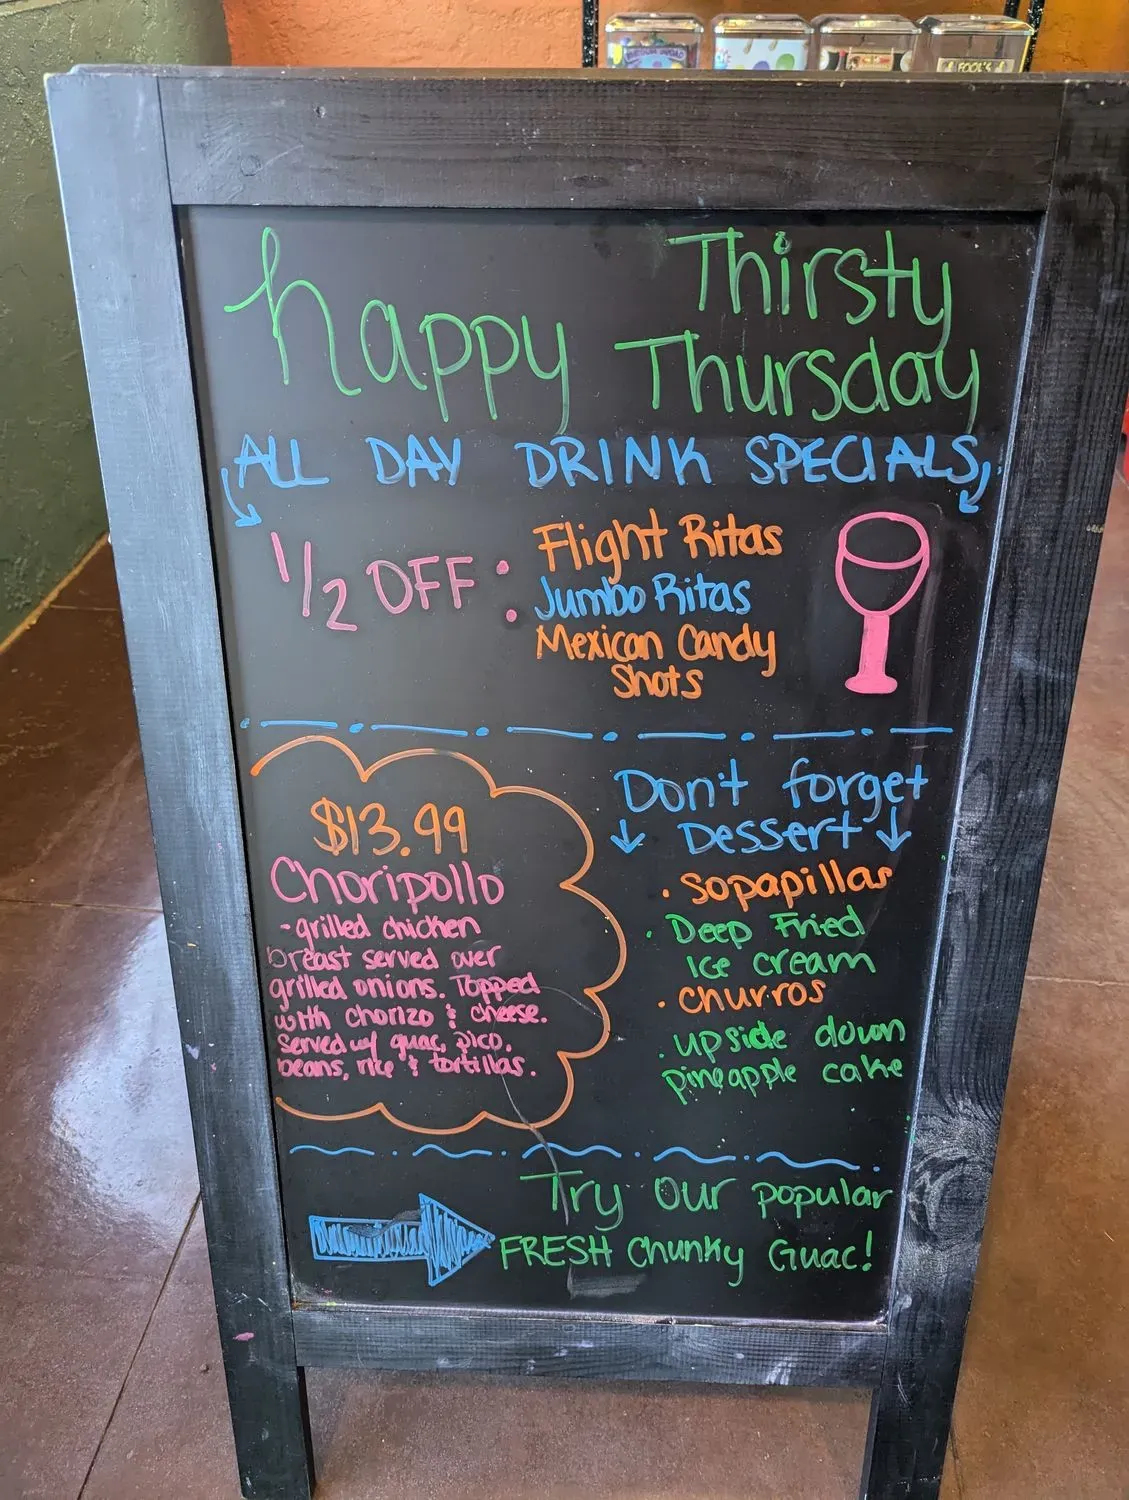 FOOL'S
happy Thirsty
Thursday
ALL DAY DRINK SPECIALS
1/2 OFF : Flight Ritas
Jumbo Ritas
Mexican Candy
Shots
$13.99
Choripollo
-grilled chicken
breast served over
grilled onions. Topped
with chorizo & cheese.
Served w/ guac, pico,
beans, rice & tortillas.
Don't forget
Dessert
· Sopapillas
· Deep Fried
Ice cream
· Churros
· upside down
pineapple cake
Try Our popular
FRESH Chunky Guac!